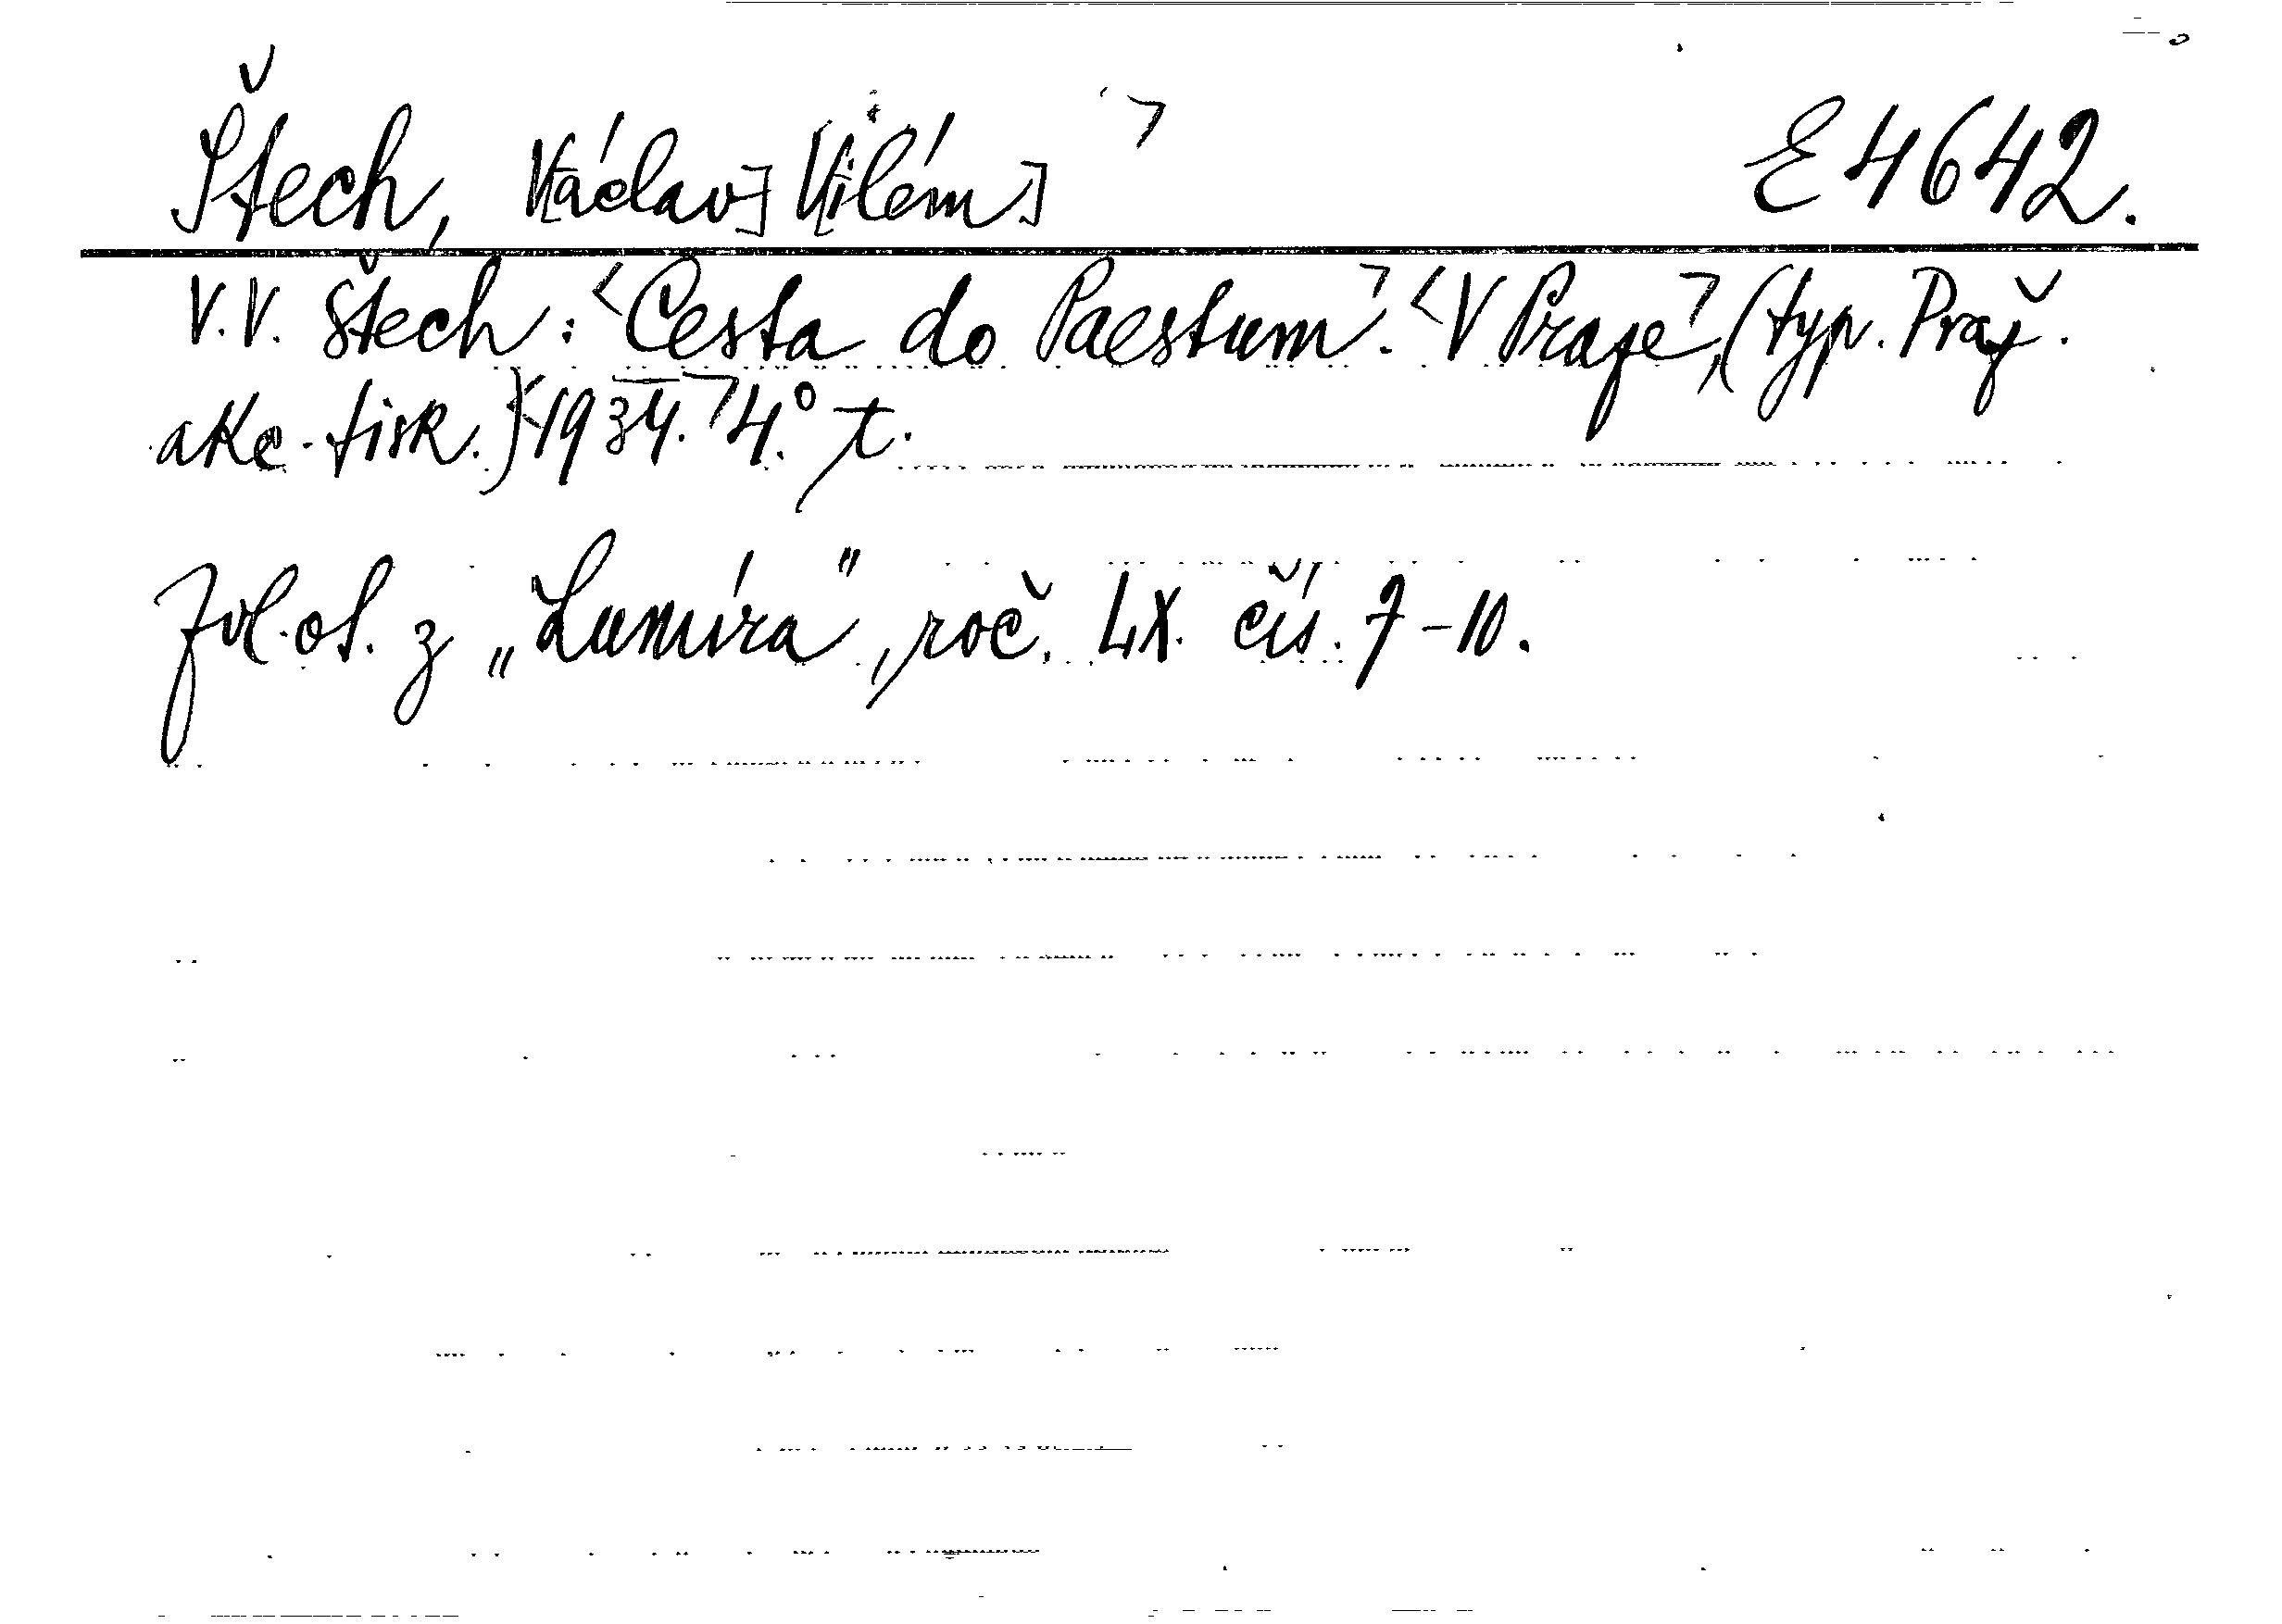 Štech, V[áclav] V[ilém] ⟩ E 4642.
V. V. Štech: ⟨Cesta do Paestum⟩. ⟨V Praze⟩, (typ. Praž.
akc. tisk.) ⟨1934.⟩ 4.° t.
Zvl. ot. z „Lumíra“, roč. LX. čís. 7-10.